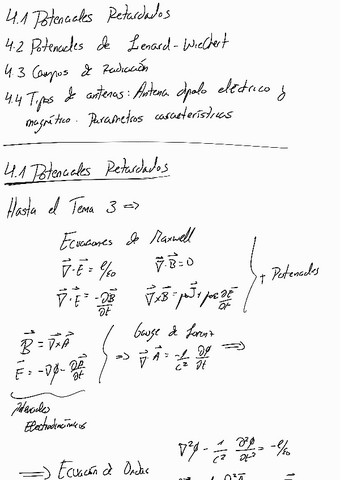 4.1 Potenciales Retardados
4.2 Potenciales de Lienard-Wiechert
4.3 Campos de radiación
4.4 Tipos de antenas: Antena dipolo eléctrico y
magnético. Parametros característicos
4.1 Potenciales Retardados
Hasta el Tema 3 ⇒
Ecuaciones de Maxwell
∇·E = ρ/ε0   ∇·B = 0
∇·E = -∂B/∂t   ∇×B = μ0J + μ0ε0 ∂E/∂t
+ Potenciales
B = ∇×A
E = -∇φ - ∂A/∂t
Gauge de Lorenz
⇒ ∇·A = -1/c² ∂φ/∂t ⇒
Potenciales
Electrodinámicos
∇²φ - 1/c² ∂²φ/∂t² = -ρ/ε0
⇒ Ecuación de Ondas